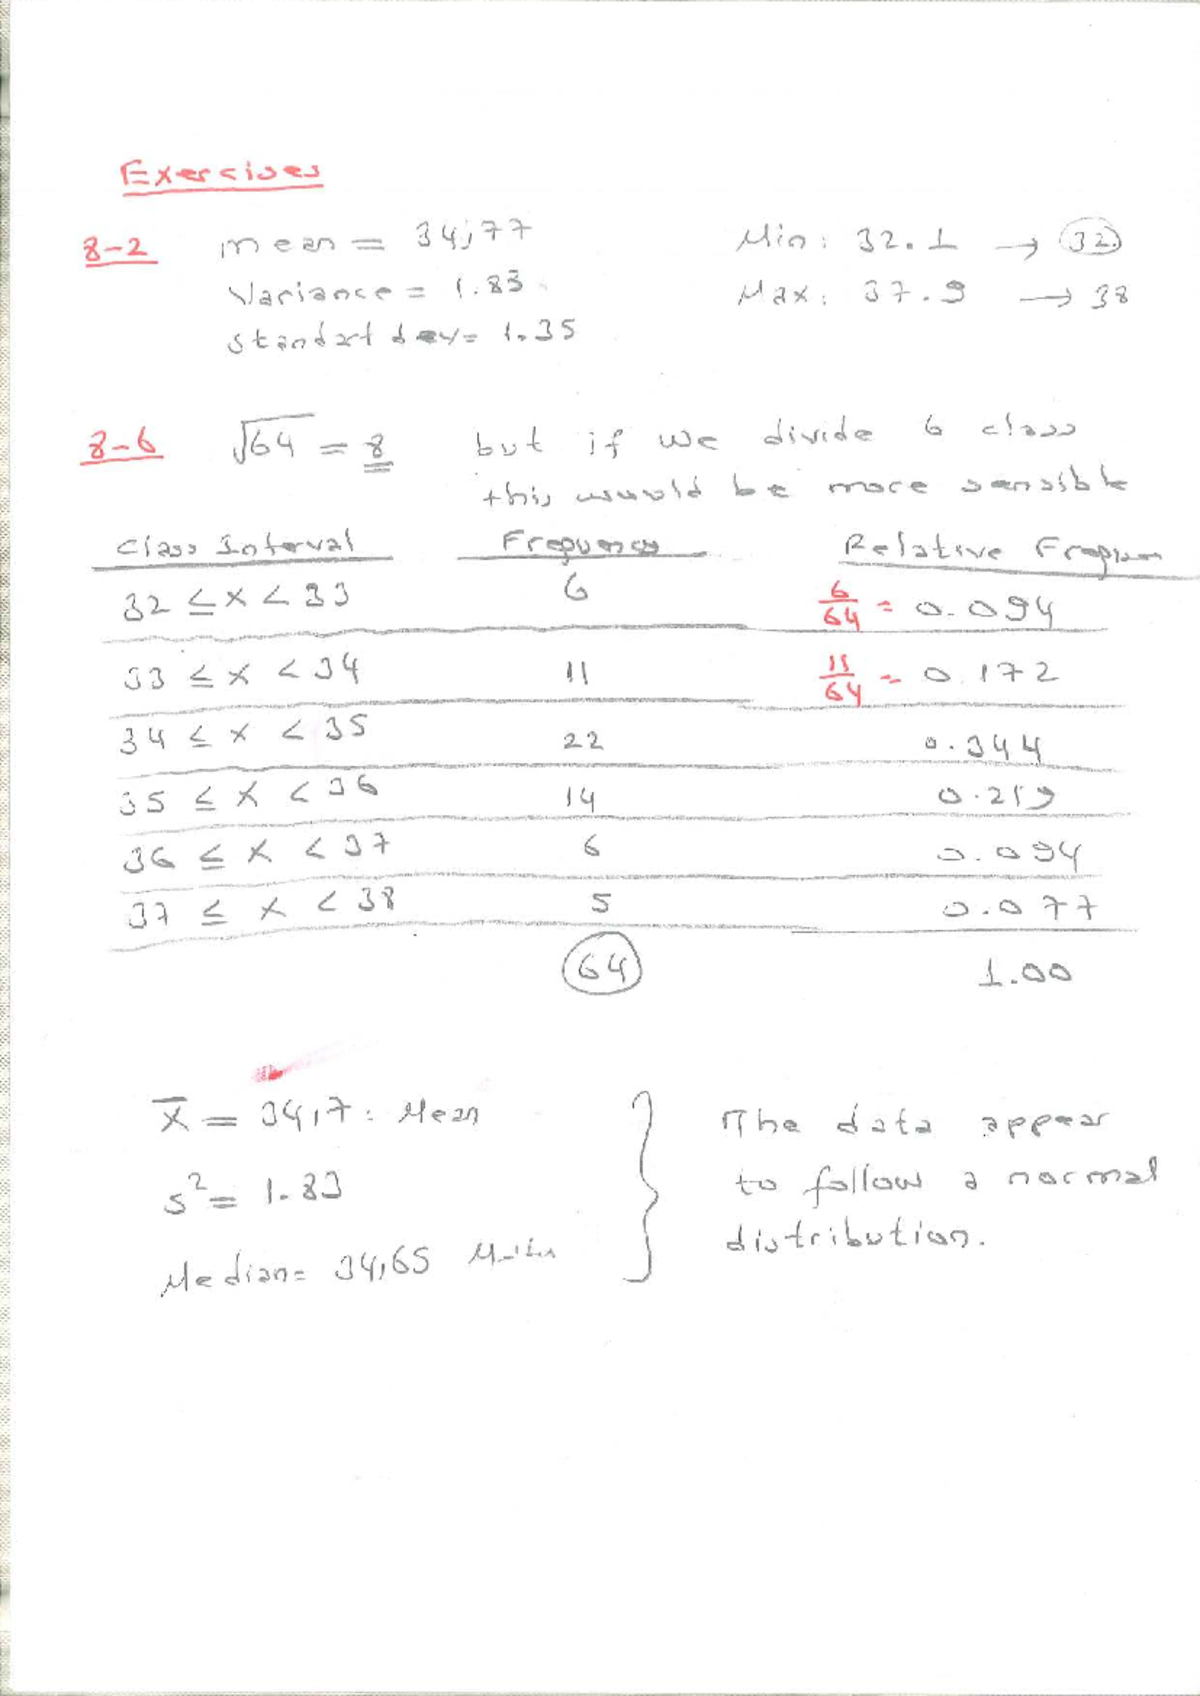 Exercises
8-2 mean = 34,77 Min: 32.1 → 32.
Variance = 1.83 Max: 37.9 → 38
standart dev = 1.35
8-6 √64 = 8 but if we divide 6 class
this would be more sensible
Class Interval Frequency Relative
32 ≤ x < 33 6 6/64 = 0.094
33 ≤ x < 34 11 11/64 = 0.172
34 ≤ x < 35 22 0.344
35 ≤ x < 36 14 0.219
36 ≤ x < 37 6 0.094
37 ≤ x < 38 5 0.077
64 1.00
x̄ = 34,7 : Mean The data appear
s² = 1.83 to follow a normal
Median = 34,65 distribution.